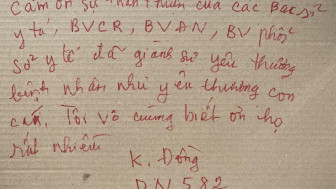 Cảm ơn sự thân thiện của các Bác sĩ
y tá, BVCR, BVAN, BV phổi
Sở y tế đã giành sự yêu thương
bệnh nhân như yêu thương con
cái. Tôi vô cùng biết ơn họ
rất nhiều
K. Đồng
BN 582